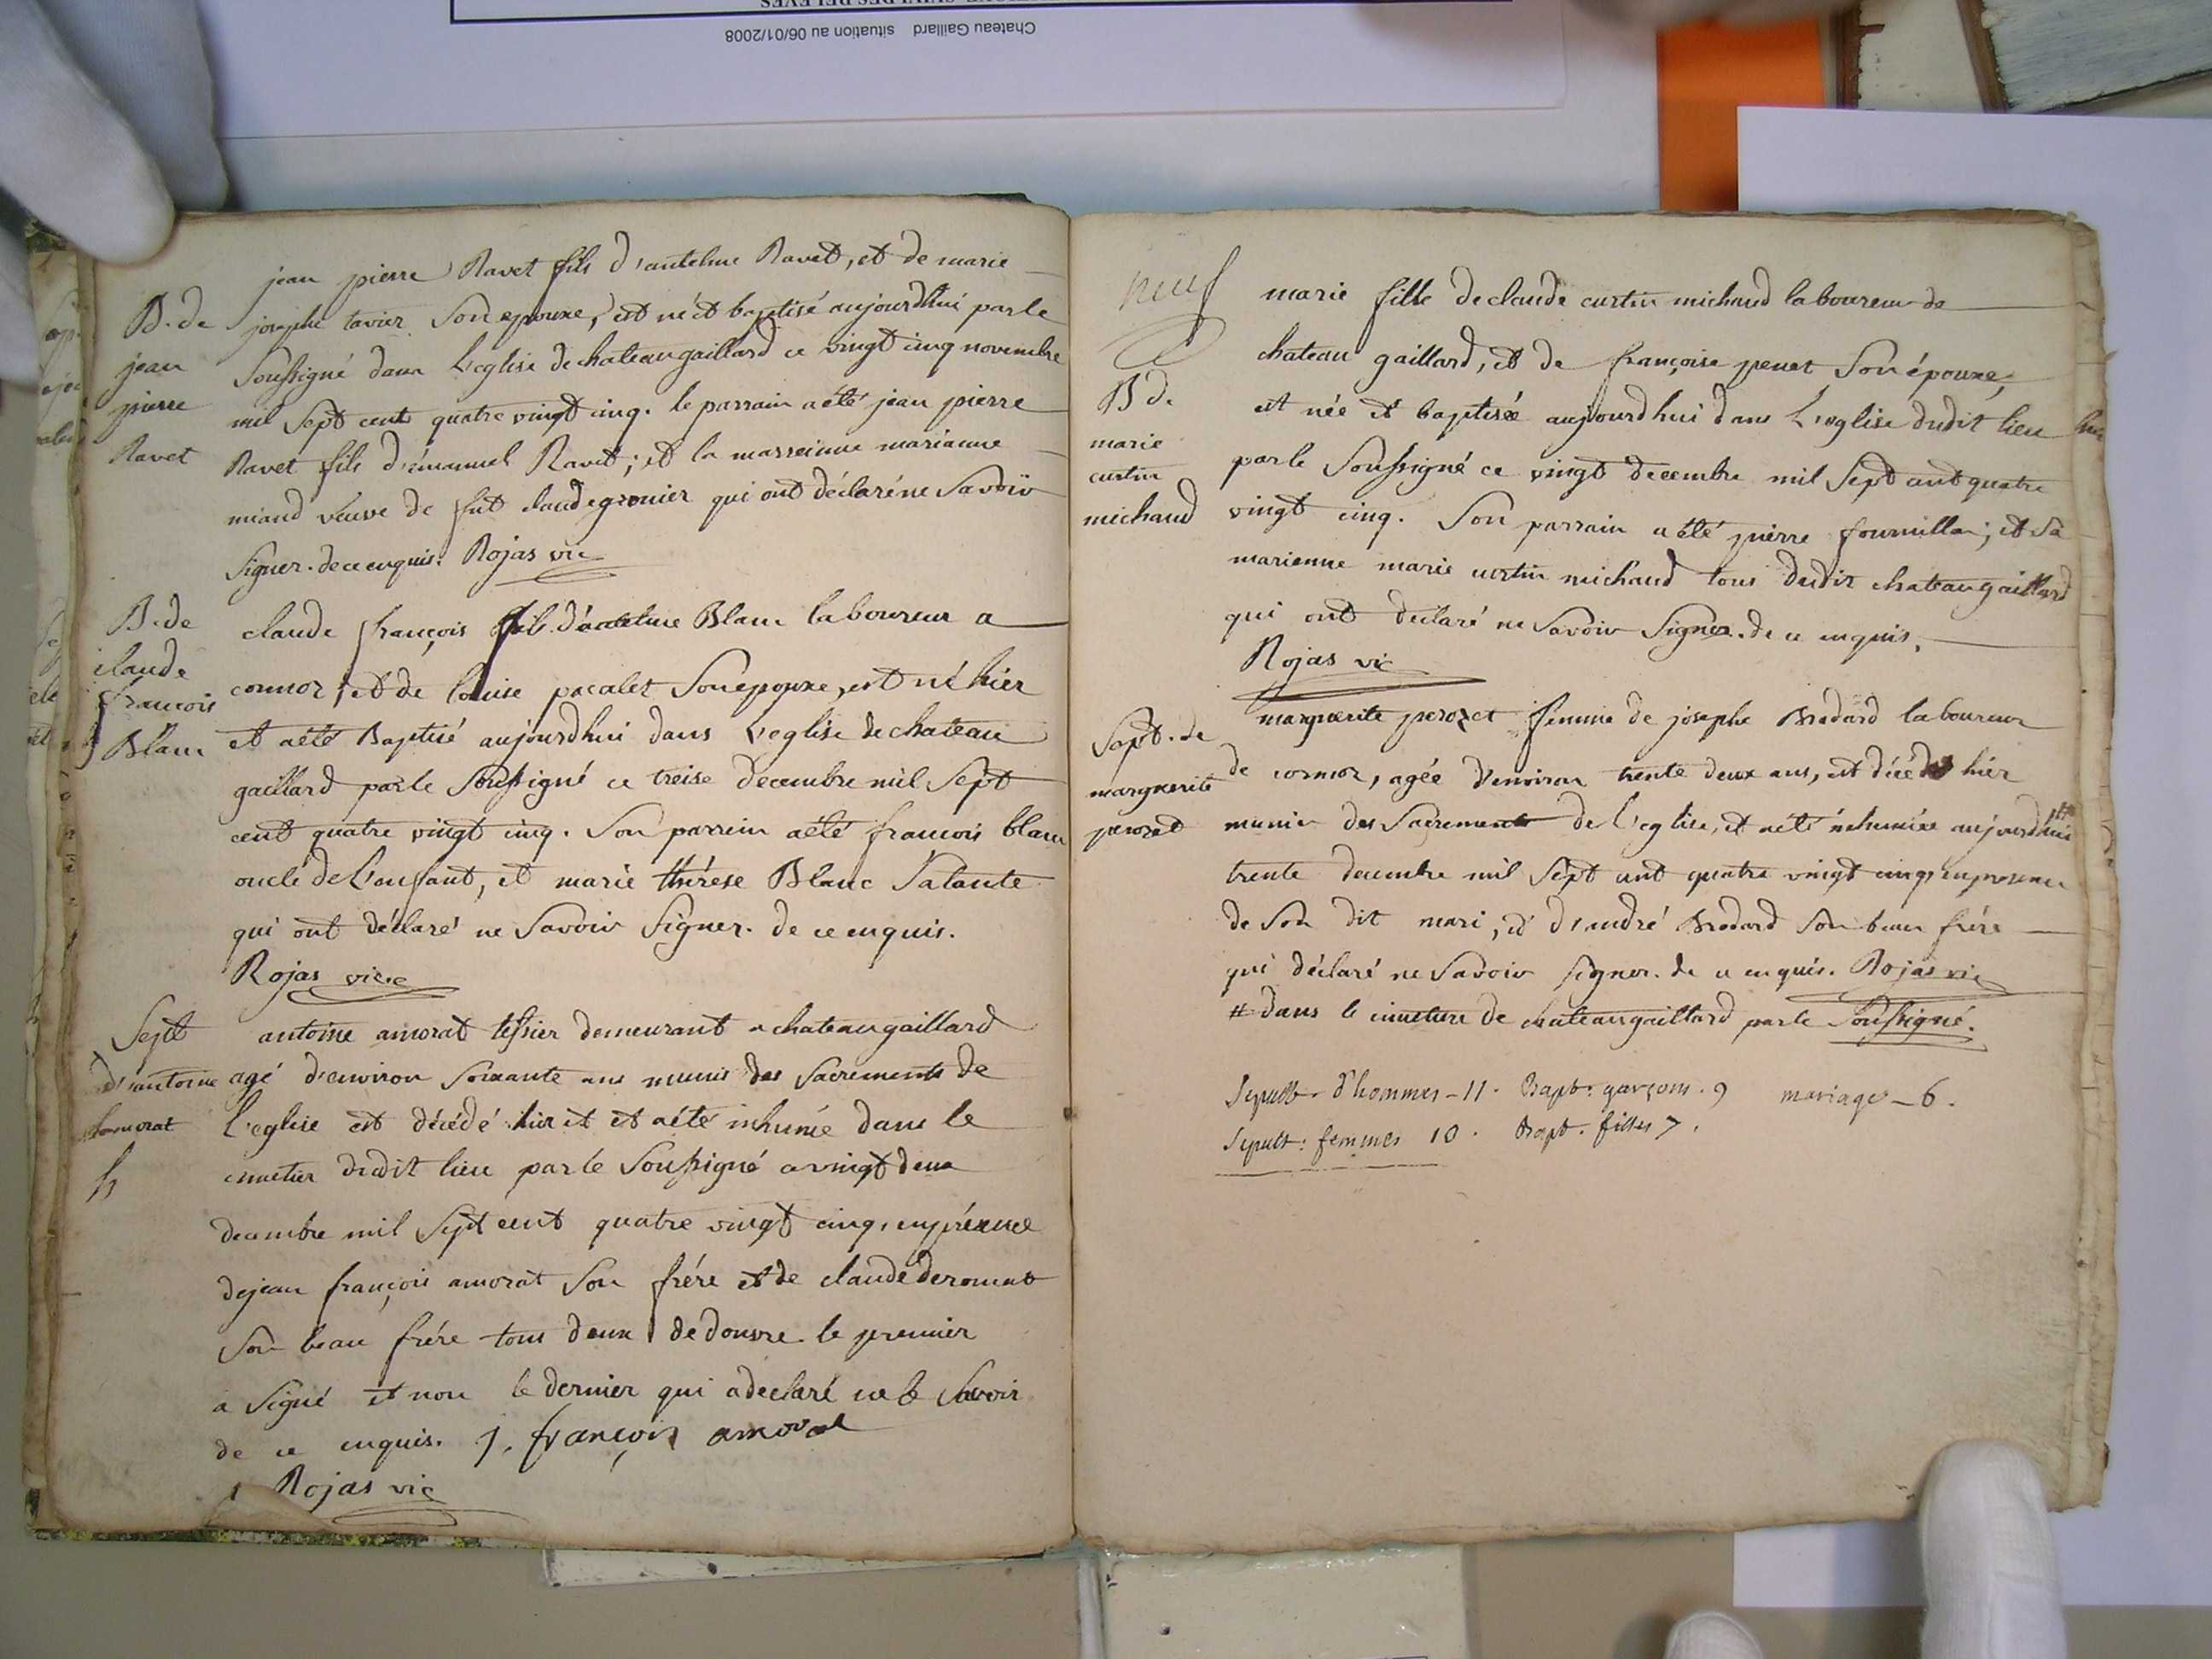 Chateau Gaillard situation au 06/01/2008
jean pierre Ravet fils d'antelme Ravet, et de marie
B. de josephe tavier Son epouxe, est né et baptisé aujourdhui par le
jean Soussigné dans L'eglise de chateaugaillard ce vingt cinq novembre
pierre mil Sept cent quatre vingt cinq. le parrain a été jean pierre
Ravet Ravet fils d'émanuel Ravet; et la marreinne marianne
miand veuve de fut claude gronier qui ont déclaré ne Savoir
Signer. de ce enquis. Rojas vic
B. de claude françois fils d'antelme Blanc laboureur a
claude
françois cormoz, et de louise pacalet Son epouxe, est né hier
Blanc et a été Baptisé aujourdhui dans L'eglise de chateau
gaillard par le Soussigné ce treise decembre mil Sept
cent quatre vingt cinq. Son parrein a été francois blanc
oncle de L'enfant, et marie thérese Blanc Satante
qui ont déclaré ne Savoir Signer. de ce enquis.
Rojas vic
Sept antoine amorat tessier demeurant a chateaugaillard
d'antoine agé d'environ Soixante ans munis des Sacrements de
amorat L'eglise est décédé hier et et a été inhumé dans le
h cimetier dudit lieu par le Soussigné ce vingt deux
decembre mil Sept cent quatre vingt cinq, en présence
de jean françois amorat Son frére et de claude deromat
Son beau frére tous deux de douvre. le premier
a Signé et non le dernier qui a declaré ne le Savoir
de ce enquis. j. françois amorat
Rojas vic
neuf marie fille de claude curtin michaud laboureur de
chateau gaillard, et de françoise penet Son épouxe,
B de est née et baptisée aujourdhui dans L'eglise dudit lieu
marie
curtin par le Soussigné ce vingt decembre mil Sept cent quatre
michaud vingt cinq. Son parrain a été pierre fournillon; et Sa
marienne marie curtin michaud tous dudit chateaugaillard
qui ont declaré ne Savoir Signer. de ce enquis.
Rojas vic
marguerite perozet femme de josephe Brodard laboureur
Sept. de de cormoz, agée d'environ trente deux ans, est décédé hier
marguerite
perozet munie des Sacrements de L'eglise, et a été inhumée aujourdhui #
trente decembre mil Sept cent quatre vingt cinq, en presence
de Son dit mari, et d'andré Brodard Son beau frére
qui déclaré ne Savoir Signer. de ce enquis. Rojas vic
# dans le cimetiere de chateaugaillard par le Soussigné.
Sepult. d'hommes - 11. Bapt. garçons. 9 mariages - 6.
Sepult: femmes 10. Bapt. filles 7.